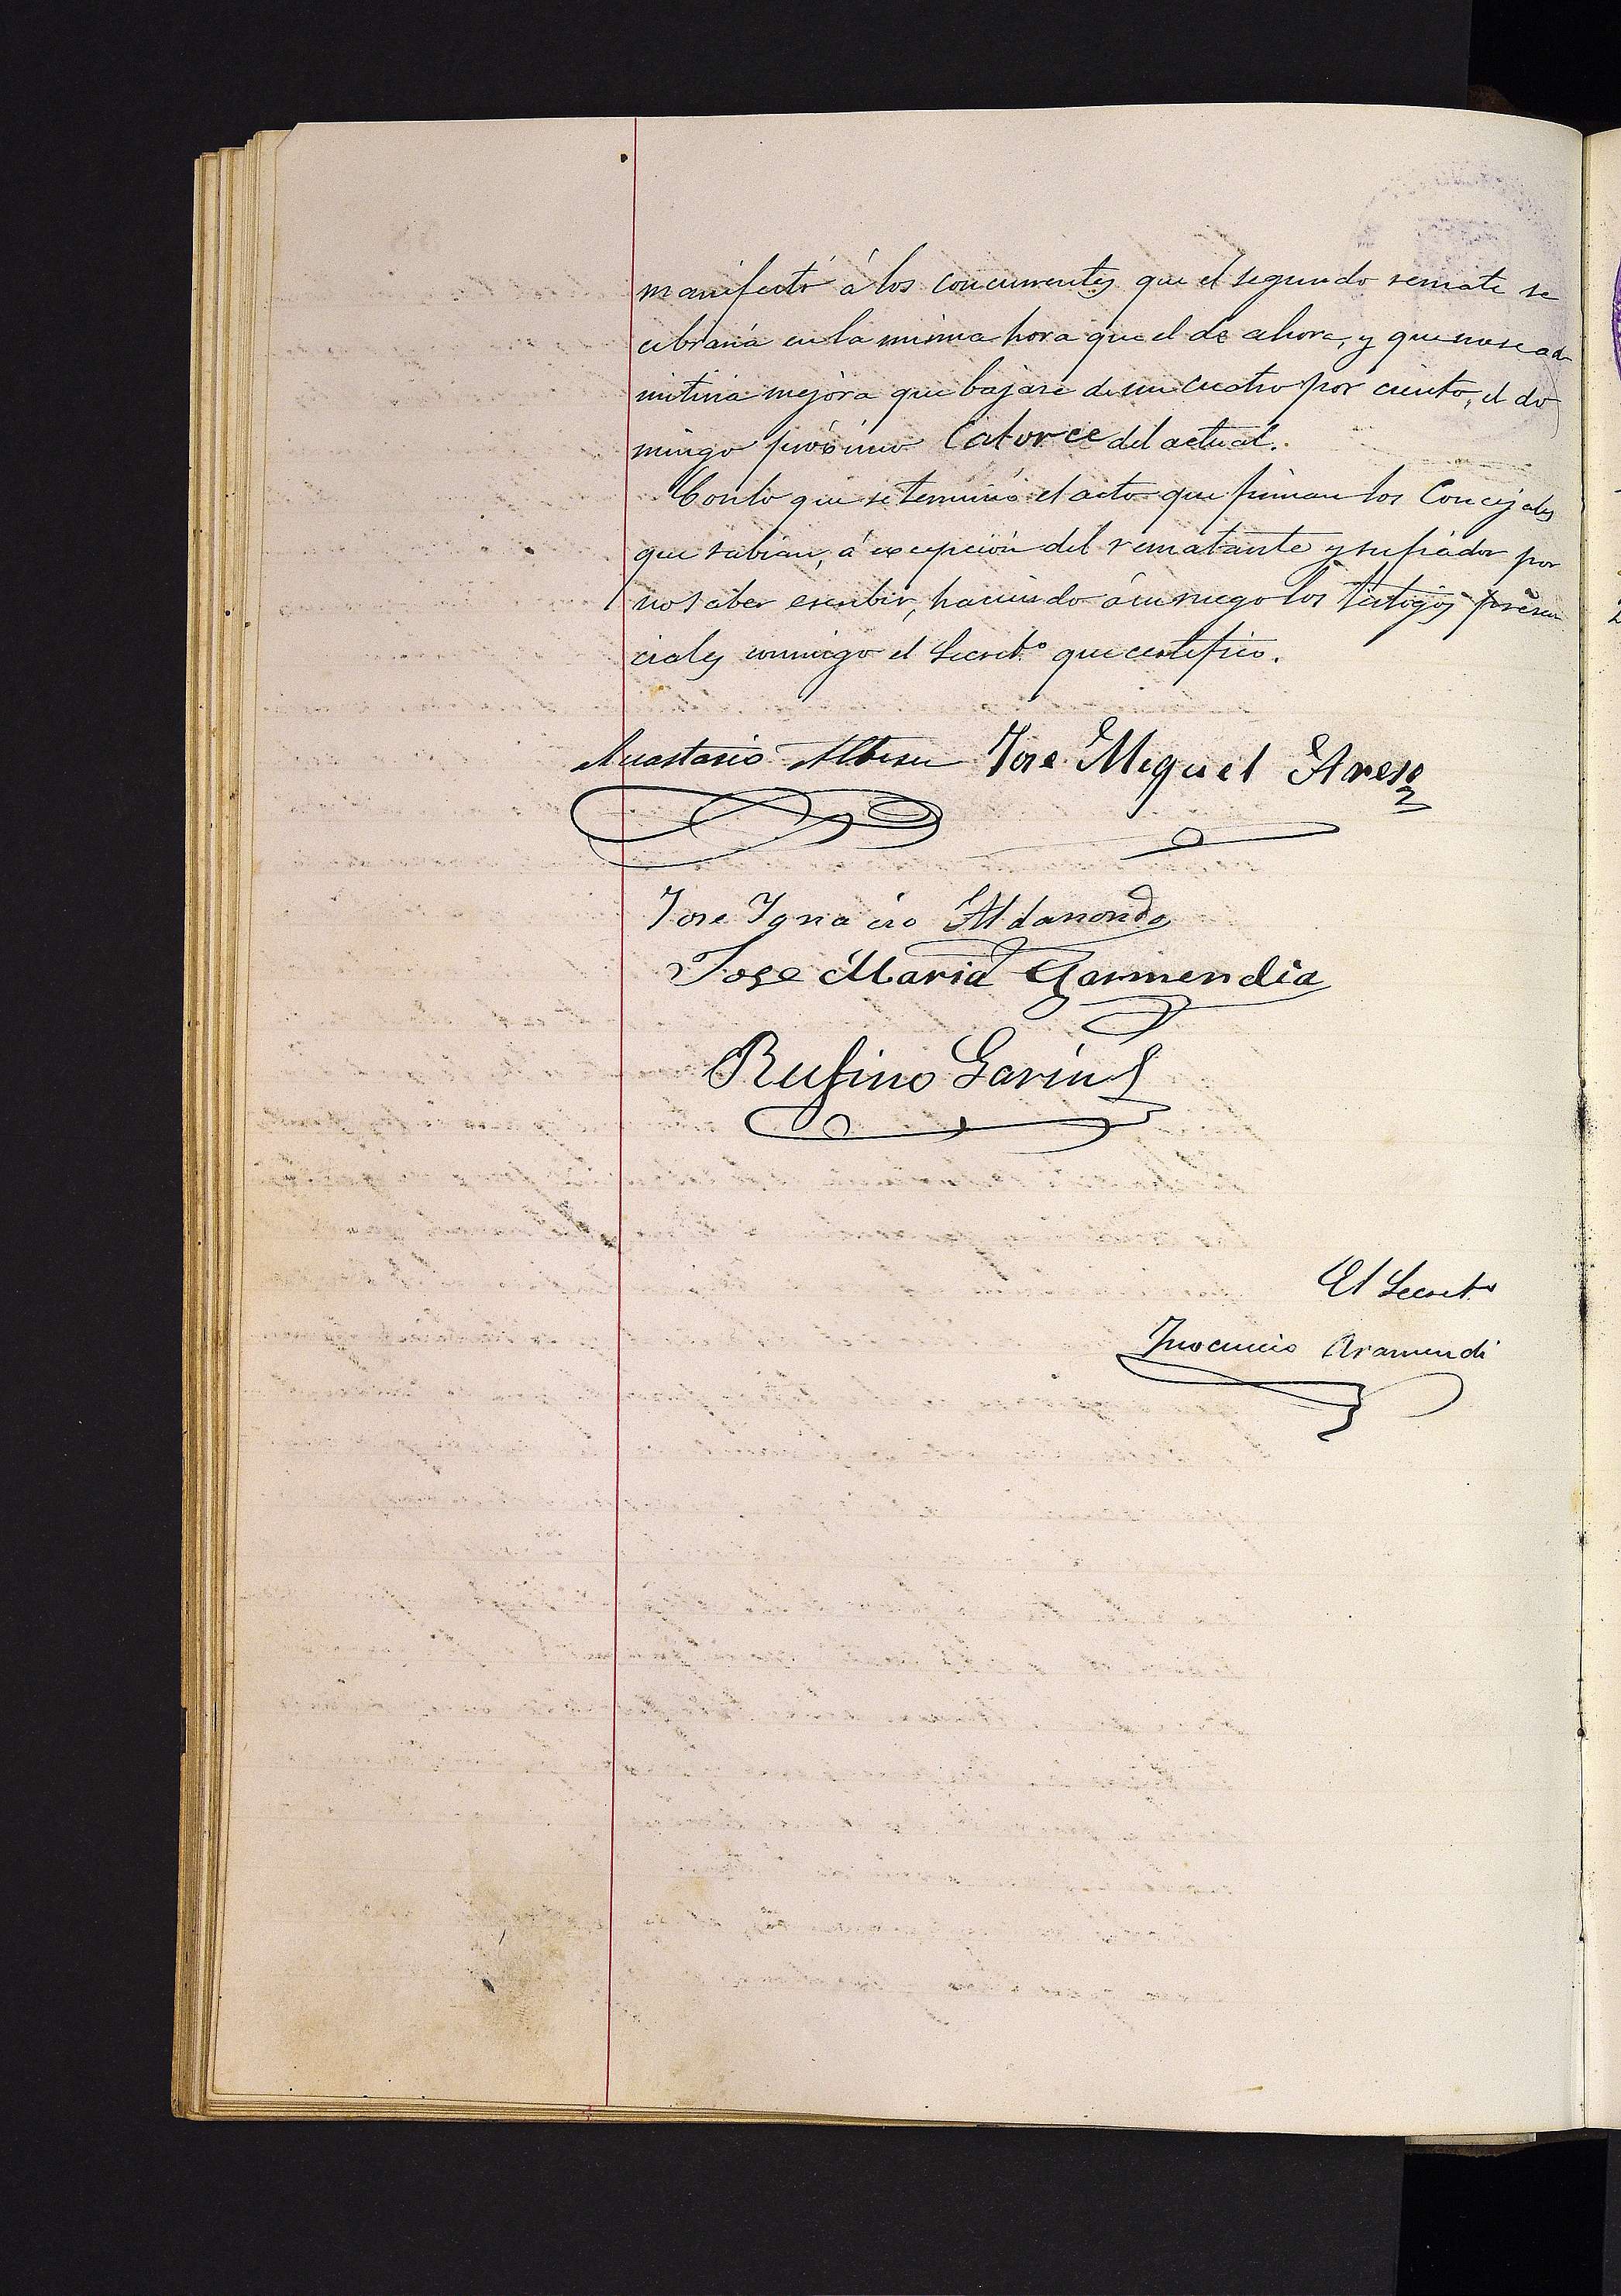 manifestó á los concurrentes que el segundo remate se
celebraria en la misma hora que el de ahora, y que no se ad
mitiria mejora que bajase de un cuatro por ciento, el do
mingo próximo Catorce del actual.
Con lo que se terminó el acto que firman los Concejales
que sabian, á excepción del rematante y su fiador por
no saber escribir, haciendo á su ruego los testigos presen
ciales conmigo el Secret.º que certifico.
Anastasio Albisu Jose Miguel
Jose Ignacio Aldanondo
Jose Maria Garmendia
Rufino Garin
El Secret.º
Inocencio Aramendi